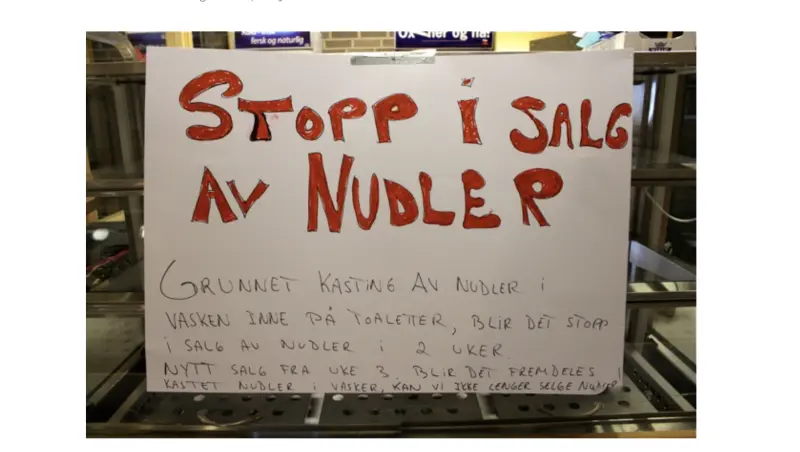 fersk og naturlig
STOPP i SALG
AV NUDLER
GRUNNET KASTING AV NUDLER i
VASKEN INNE PÅ TOALETTER, BLIR DET STOPP
i SALG AV NUDLER i 2 UKER.
NYTT SALG FRA UKE 3. BLIR DET FREMDELES
KASTET NUDLER i VASKER, KAN VI IKKE LENGER SELGE NUDLER!